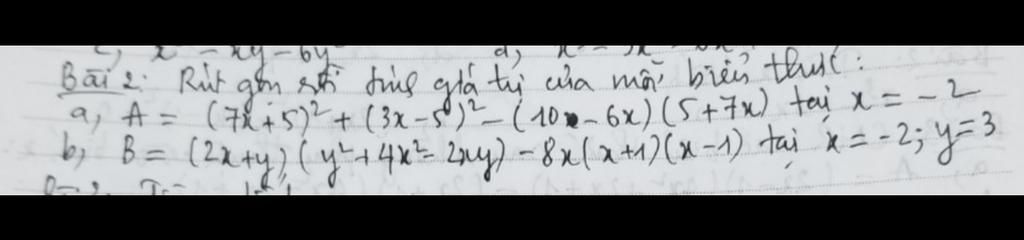 c, x² - xy - 6y²
Bài 2: Rút gọn rồi tính giá trị của mỗi biểu thức:
a, A = (7x+5)² + (3x-5)² - (10 - 6x)(5+7x) tại x = -2
b, B = (2x+y)(y²+4x²-2xy) - 8x(x+1)(x-1) tại x = -2; y=3